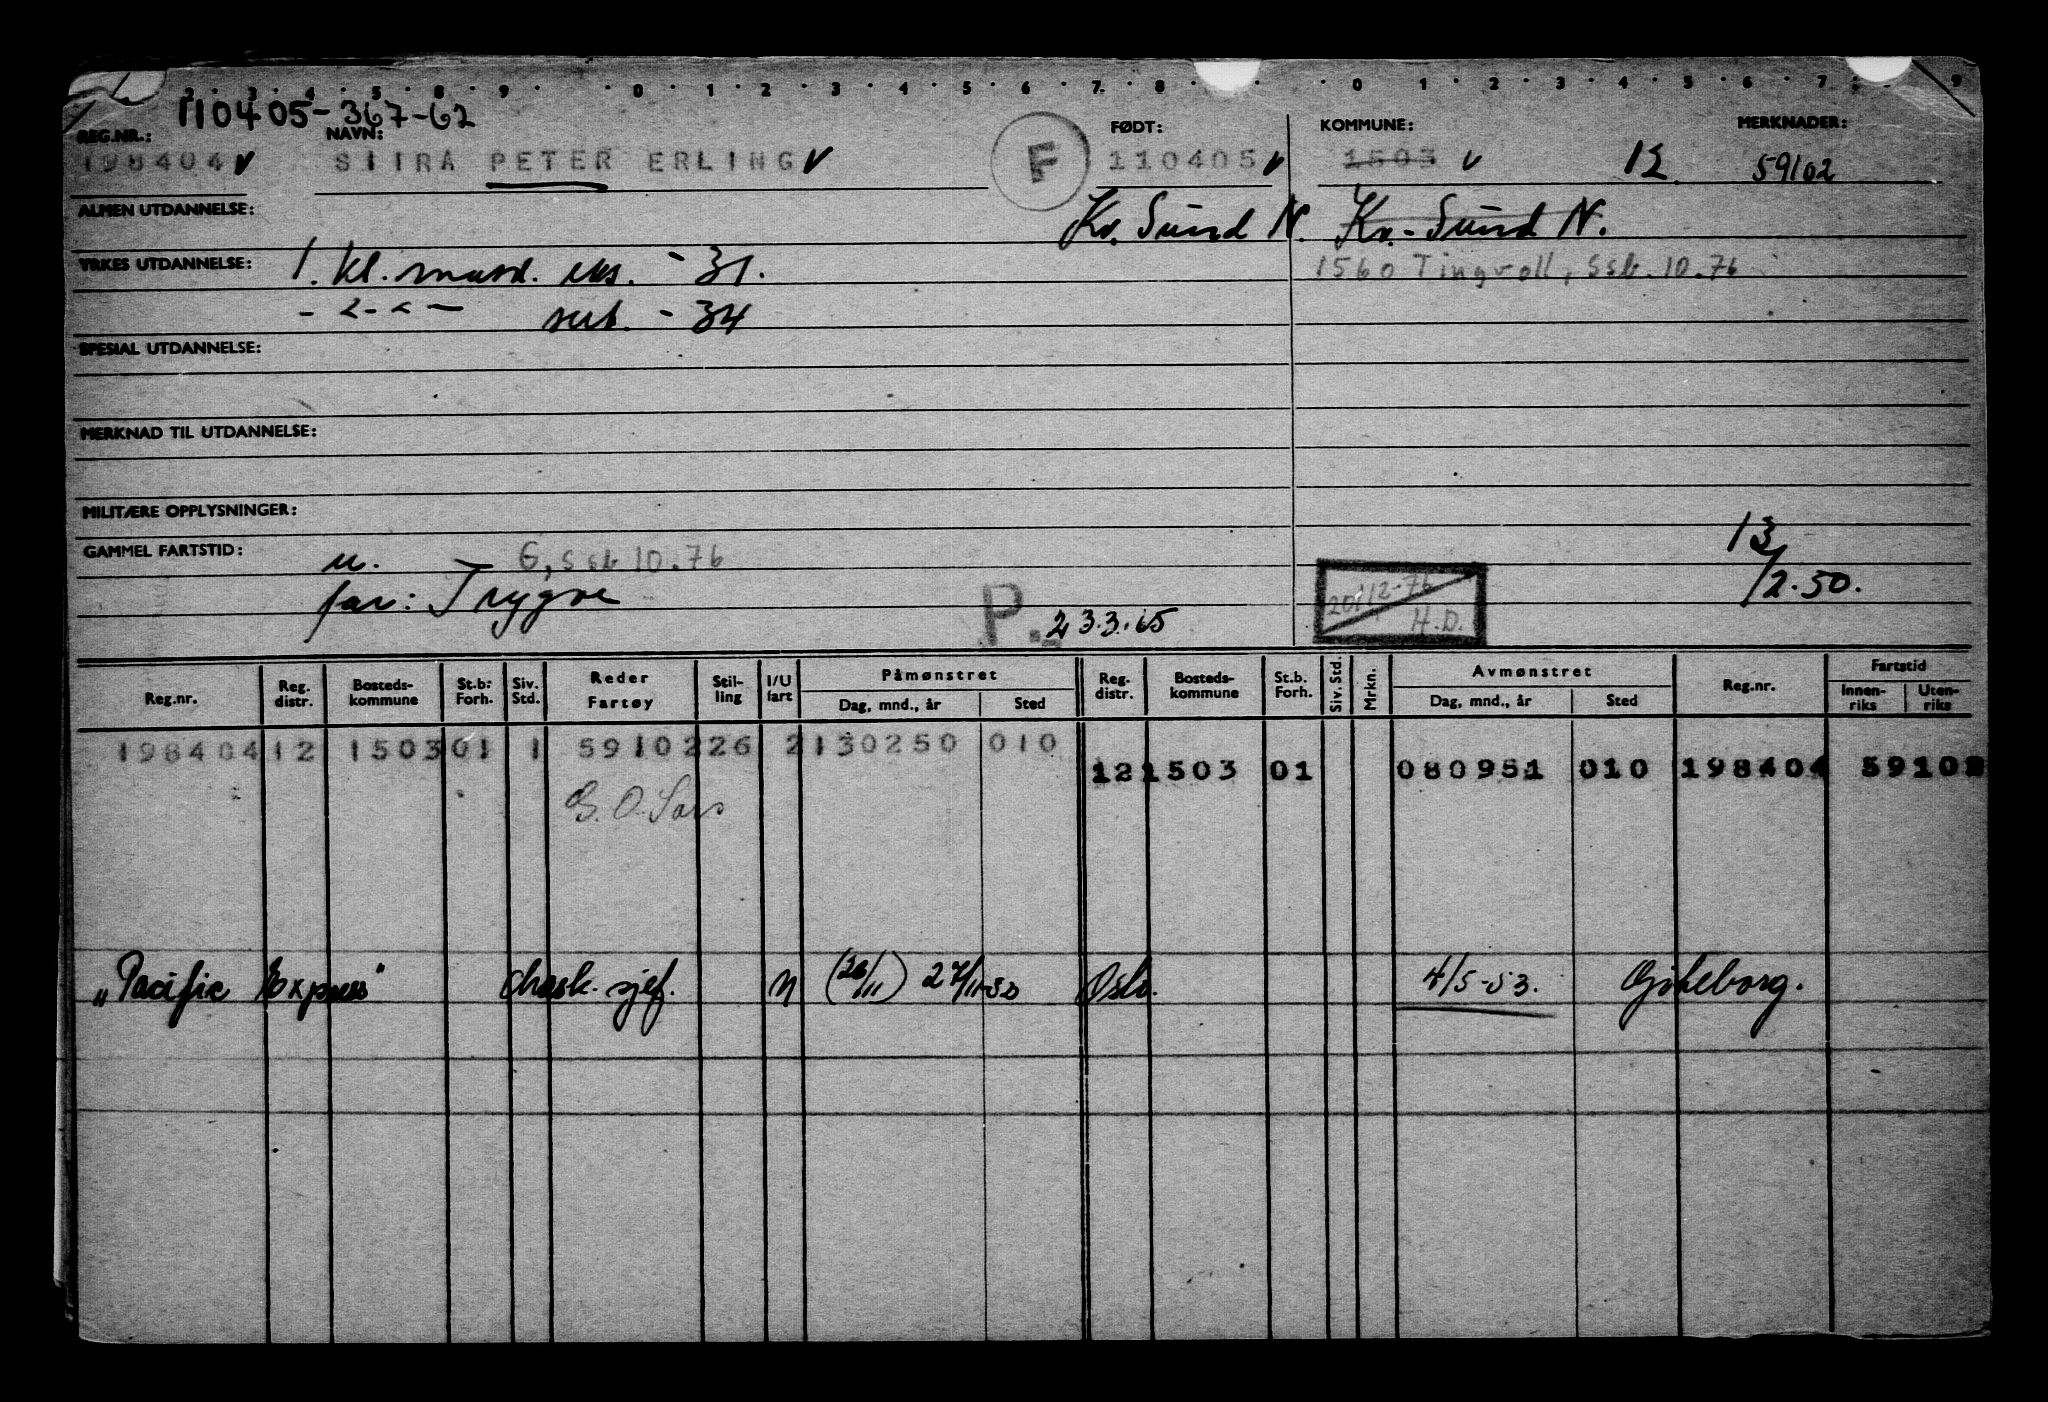 2 . 3 . 4 . 5 . 8 . 9 . . 0 . 1 . 2 . 3 . 4 . 5 . 6 . 7 . 8 . . 0 . 1 . 2 . 3 . 4 . 5 . 6 . 7 . 9
110405-367-62
REG.NR.: NAVN: FØDT: KOMMUNE: MERKNADER:
198404 v SIIRA PETER ERLING v F 110405 v 1503 v 12 59102
ALMEN UTDANNELSE: Kr. Sund N. Kr.-Sund N.
YRKES UTDANNELSE: 1. kl. mask. eks. - 31. 1560 Tingvoll, Ssb. 10.76
- " - " - sert. - 34
SPESIAL UTDANNELSE:
MERKNAD TIL UTDANNELSE:
MILITÆRE OPPLYSNINGER:
GAMMEL FARTSTID: u. G, Ssb 10.76 13/2.50.
far: Trygve P. 23.3.65 20/12-76 H.D.
Reg.nr. Reg. distr. Bosteds-kommune St.b: Forh. Siv. Std. Reder Fartøy Stil-ling I/U fart Påmønstret Dag, mnd., år Sted Reg-distr. Bosteds-kommune St.b. Forh. Siv. Std. Mrkn. Avmønstret Dag, mnd., år Sted Reg.nr. Fartstid Innen-riks Uten-riks
198404 12 1503 01 1 59102 26 2 130250 010
12 1503 01 080951 010 198404 59102
G. O. Sars
„Pacific Express" Mask. sjef. U (26/11) 27/11-52 Oslo. 4/5-53. Göteborg.